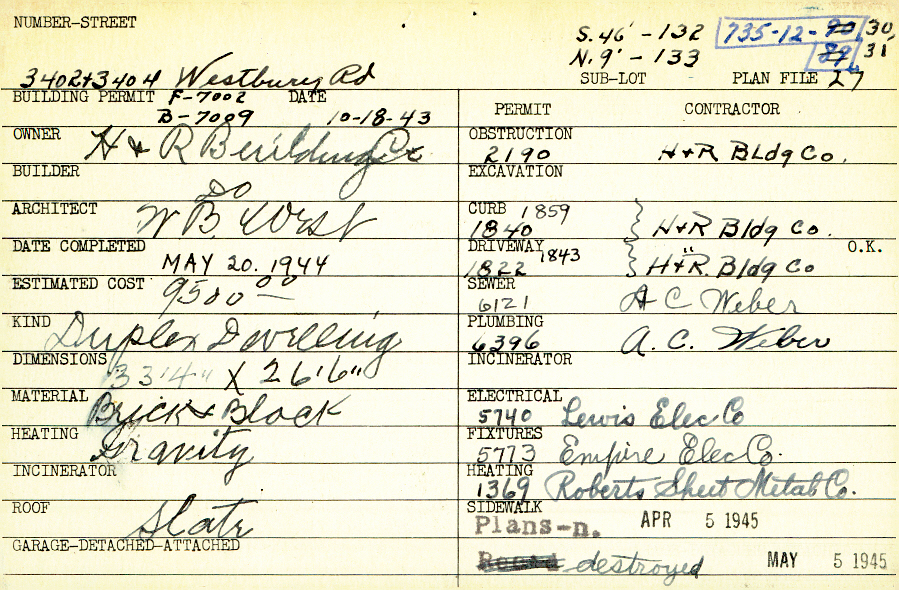 NUMBER-STREET
S. 46' - 132 735-12-90, 30,
N. 9' - 133 89, 31
3402+3404 Westbury Rd
SUB-LOT PLAN FILE 27
BUILDING PERMIT F-7002 DATE
B-7009 10-18-43
OWNER H & R Building Co
BUILDER Do
ARCHITECT W B West
DATE COMPLETED
MAY 20. 1944
ESTIMATED COST 9500 00
KIND Duplex Dwelling
DIMENSIONS 33'4" X 26'6"
MATERIAL Brick & Block
HEATING Gravity
INCINERATOR
ROOF Slate
GARAGE-DETACHED-ATTACHED
PERMIT CONTRACTOR
OBSTRUCTION
2190 H+R BLdg Co.
EXCAVATION
CURB 1859
1840 H+R Bldg Co.
DRIVEWAY 1843 " O.K.
1822 H+R. Bldg Co
SEWER
6121 A C Weber
PLUMBING
6396 A. C. Weber
INCINERATOR
ELECTRICAL
5740 Lewis Elec Co
FIXTURES
5773 Empire Elec Co.
HEATING
1369 Roberts Sheet Metal Co.
SIDEWALK
Plans-n. APR 5 1945
destroyed MAY 5 1945